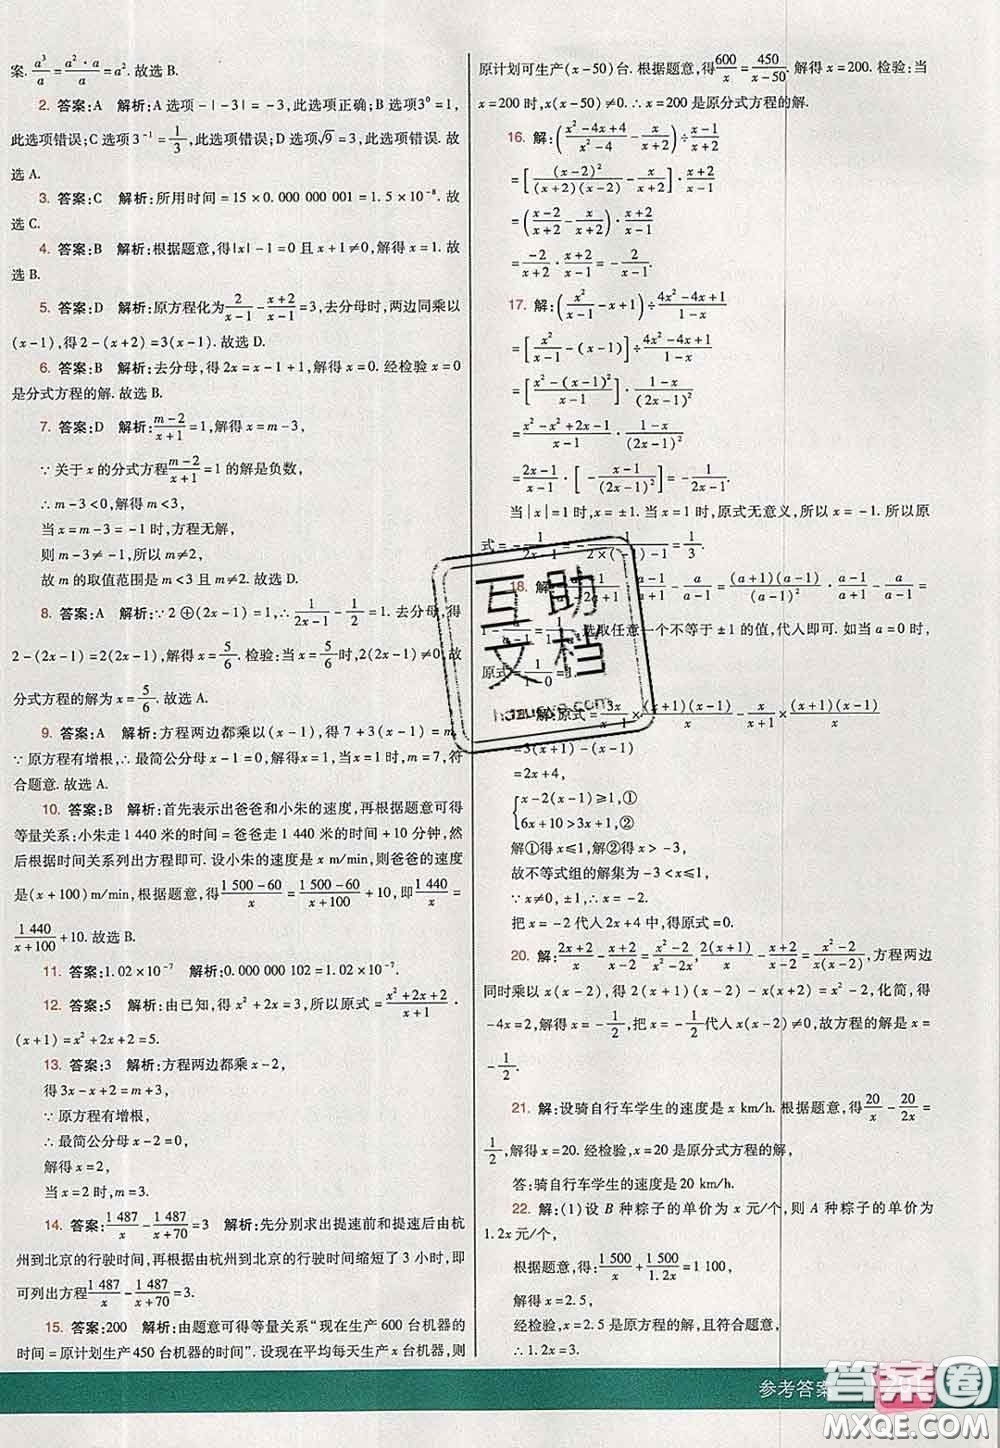 案. a³/a = a²·a/a = a². 故选 B.
2. 答案:A 解析:A 选项 -|-3| = -3,此选项正确;B 选项3⁰ = 1,
此选项错误;C 选项 3⁻¹ = 1/3,此选项错误;D 选项√9 = 3,此选项错误. 故
选 A.
3. 答案:C 解析:所用时间 = 15 × 0. 000 000 001 = 1. 5 × 10⁻⁸. 故
选 C.
4. 答案:B 解析:根据题意,得|x| - 1 = 0 且 x + 1 ≠ 0,解得 x = 1. 故
选 B.
5. 答案:D 解析:原方程化为 2/(x-1) - (x+2)/(x-1) = 3,去分母时,两边同乘以
(x-1),得 2-(x+2) = 3(x-1). 故选 D.
6. 答案:B 解析:去分母,得 2x = x-1+1,解得 x = 0. 经检验 x = 0
是分式方程的解. 故选 B.
7. 答案:D 解析: (m-2)/(x+1) = 1,解得 x = m-3,
∵ 关于 x 的分式方程 (m-2)/(x+1) = 1 的解是负数,
∴ m-3 < 0,解得 m < 3,
当 x = m-3 = -1 时,方程无解,
则 m-3 ≠ -1,所以 m ≠ 2,
故 m 的取值范围是 m < 3 且 m ≠ 2. 故选 D.
8. 答案:A 解析:∵ 2⊕(2x-1) = 1,∴ 1/(2x-1) - 1/2 = 1. 去分母,得
2-(2x-1) = 2(2x-1),解得 x = 5/6. 检验:当 x = 5/6 时,2(2x-1) ≠ 0. 故
分式方程的解为 x = 5/6. 故选 A.
9. 答案:A 解析:方程两边都乘以(x-1),得 7+3(x-1) = m.
∵ 原方程有增根,∴ 最简公分母 x-1 = 0,解得 x = 1. 当 x = 1 时,m = 7,符
合题意. 故选 A.
10. 答案:B 解析:首先表示出爸爸和小朱的速度,再根据题意可得
等量关系:小朱走 1 440 米的时间 = 爸爸走 1 440 米的时间 + 10 分钟,然
后根据时间关系列出方程即可. 设小朱的速度是 x m/min,则爸爸的速度
是(x+100) m/min,根据题意,得 (1 500-60)/x = (1 500-60)/(x+100) + 10,即 1 440/x =
1 440/(x+100) + 10. 故选 B.
11. 答案:1. 02 × 10⁻⁷ 解析:0. 000 000 102 = 1. 02 × 10⁻⁷.
12. 答案:5 解析:由已知,得 x²+2x = 3,所以原式 = (x²+2x+2)/(x+1) ·
(x+1) = x²+2x+2 = 5.
13. 答案:3 解析:方程两边都乘 x-2,
得 3x-x+2 = m,
∵ 原方程有增根,
∴ 最简公分母 x-2 = 0,
解得 x = 2,
当 x = 2 时,m = 3.
14. 答案: 1 487/x - 1 487/(x+70) = 3 解析:先分别求出提速前和提速后由杭
州到北京的行驶时间,再根据由杭州到北京的行驶时间缩短了 3 小时,即
可列出方程 1 487/x - 1 487/(x+70) = 3.
15. 答案:200 解析:由题意可得等量关系“现在生产 600 台机器的
时间 = 原计划生产 450 台机器的时间”. 设现在平均每天生产 x 台机器,则
原计划可生产(x-50)台. 根据题意,得 600/x = 450/(x-50). 解得 x = 200. 检验:当
x = 200 时,x(x-50) ≠ 0. ∴ x = 200 是原分式方程的解.
16. 解: ((x²-4x+4)/(x²-4) - x/(x+2)) ÷ (x-1)/(x+2)
= [(x-2)²/((x+2)(x-2)) - x/(x+2)] · (x+2)/(x-1)
= ((x-2)/(x+2) - x/(x+2)) · (x+2)/(x-1)
= -2/(x+2) · (x+2)/(x-1) = -2/(x-1).
17. 解: (x²/(x-1) - x+1) ÷ (4x²-4x+1)/(1-x)
= [x²/(x-1) - (x-1)] ÷ (4x²-4x+1)/(1-x)
= [(x²-(x-1)²)/(x-1)] · (1-x)/(2x-1)²
= (x²-x²+2x-1)/(x-1) · (1-x)/(2x-1)²
= (2x-1)/(x-1) · [-(x-1)/(2x-1)²] = -1/(2x-1).
当|x| = 1 时,x = ±1. 当 x = 1 时,原式无意义,所以 x = -1. 所以原
式 = -1/(2x-1) = -1/(2×(-1)-1) = 1/3.
18. 解
a/(a-1) = (a+1)(a-1)/(a-1)² · a/(a+1) - a/(a-1) =
选取任意一个不等于 ±1 的值,代入即可. 如当 a = 0 时,
原式 = 1/(1-0) = 1.
解:原式 = 3x/(x-1) × (x+1)(x-1)/x - x/(x+1) × (x+1)(x-1)/x
= 3(x+1)-(x-1)
= 2x+4,
{ x-2(x-1) ≥ 1,①
6x+10 > 3x+1,②
解①得 x ≤ 1,解②得 x > -3,
故不等式组的解集为 -3 < x ≤ 1.
∵ x ≠ ±1, x ≠ 0,∴ x = -2.
把 x = -2 代入 2x+4 中,得原式 = 0.
20. 解: (2x+2)/x - (x+2)/(x-2) = (x²-2)/(x²-2x), 2(x+1)/x - (x+2)/(x-2) = (x²-2)/(x(x-2)),方程两边
同时乘以 x(x-2),得 2(x+1)(x-2) - x(x+2) = x²-2,化简,得
-4x = 2,解得 x = -1/2,把 x = -1/2 代入 x(x-2) ≠ 0,故方程的解是 x =
-1/2.
21. 解:设骑自行车学生的速度是 x km/h. 根据题意,得 20/x - 20/2x =
1/2,解得 x = 20. 经检验,x = 20 是原分式方程的解.
答:骑自行车学生的速度是 20 km/h.
22. 解:(1)设 B 种粽子的单价为 x 元/个,则 A 种粽子的单价为
1. 2x 元/个,
根据题意,得: 1 500/x + 1 500/1. 2x = 1 100,
解得 x = 2. 5,
经检验,x = 2. 5 是原方程的解,且符合题意,
∴ 1. 2x = 3.
参考答案
互助
文档
答案圈
MXQE.COM